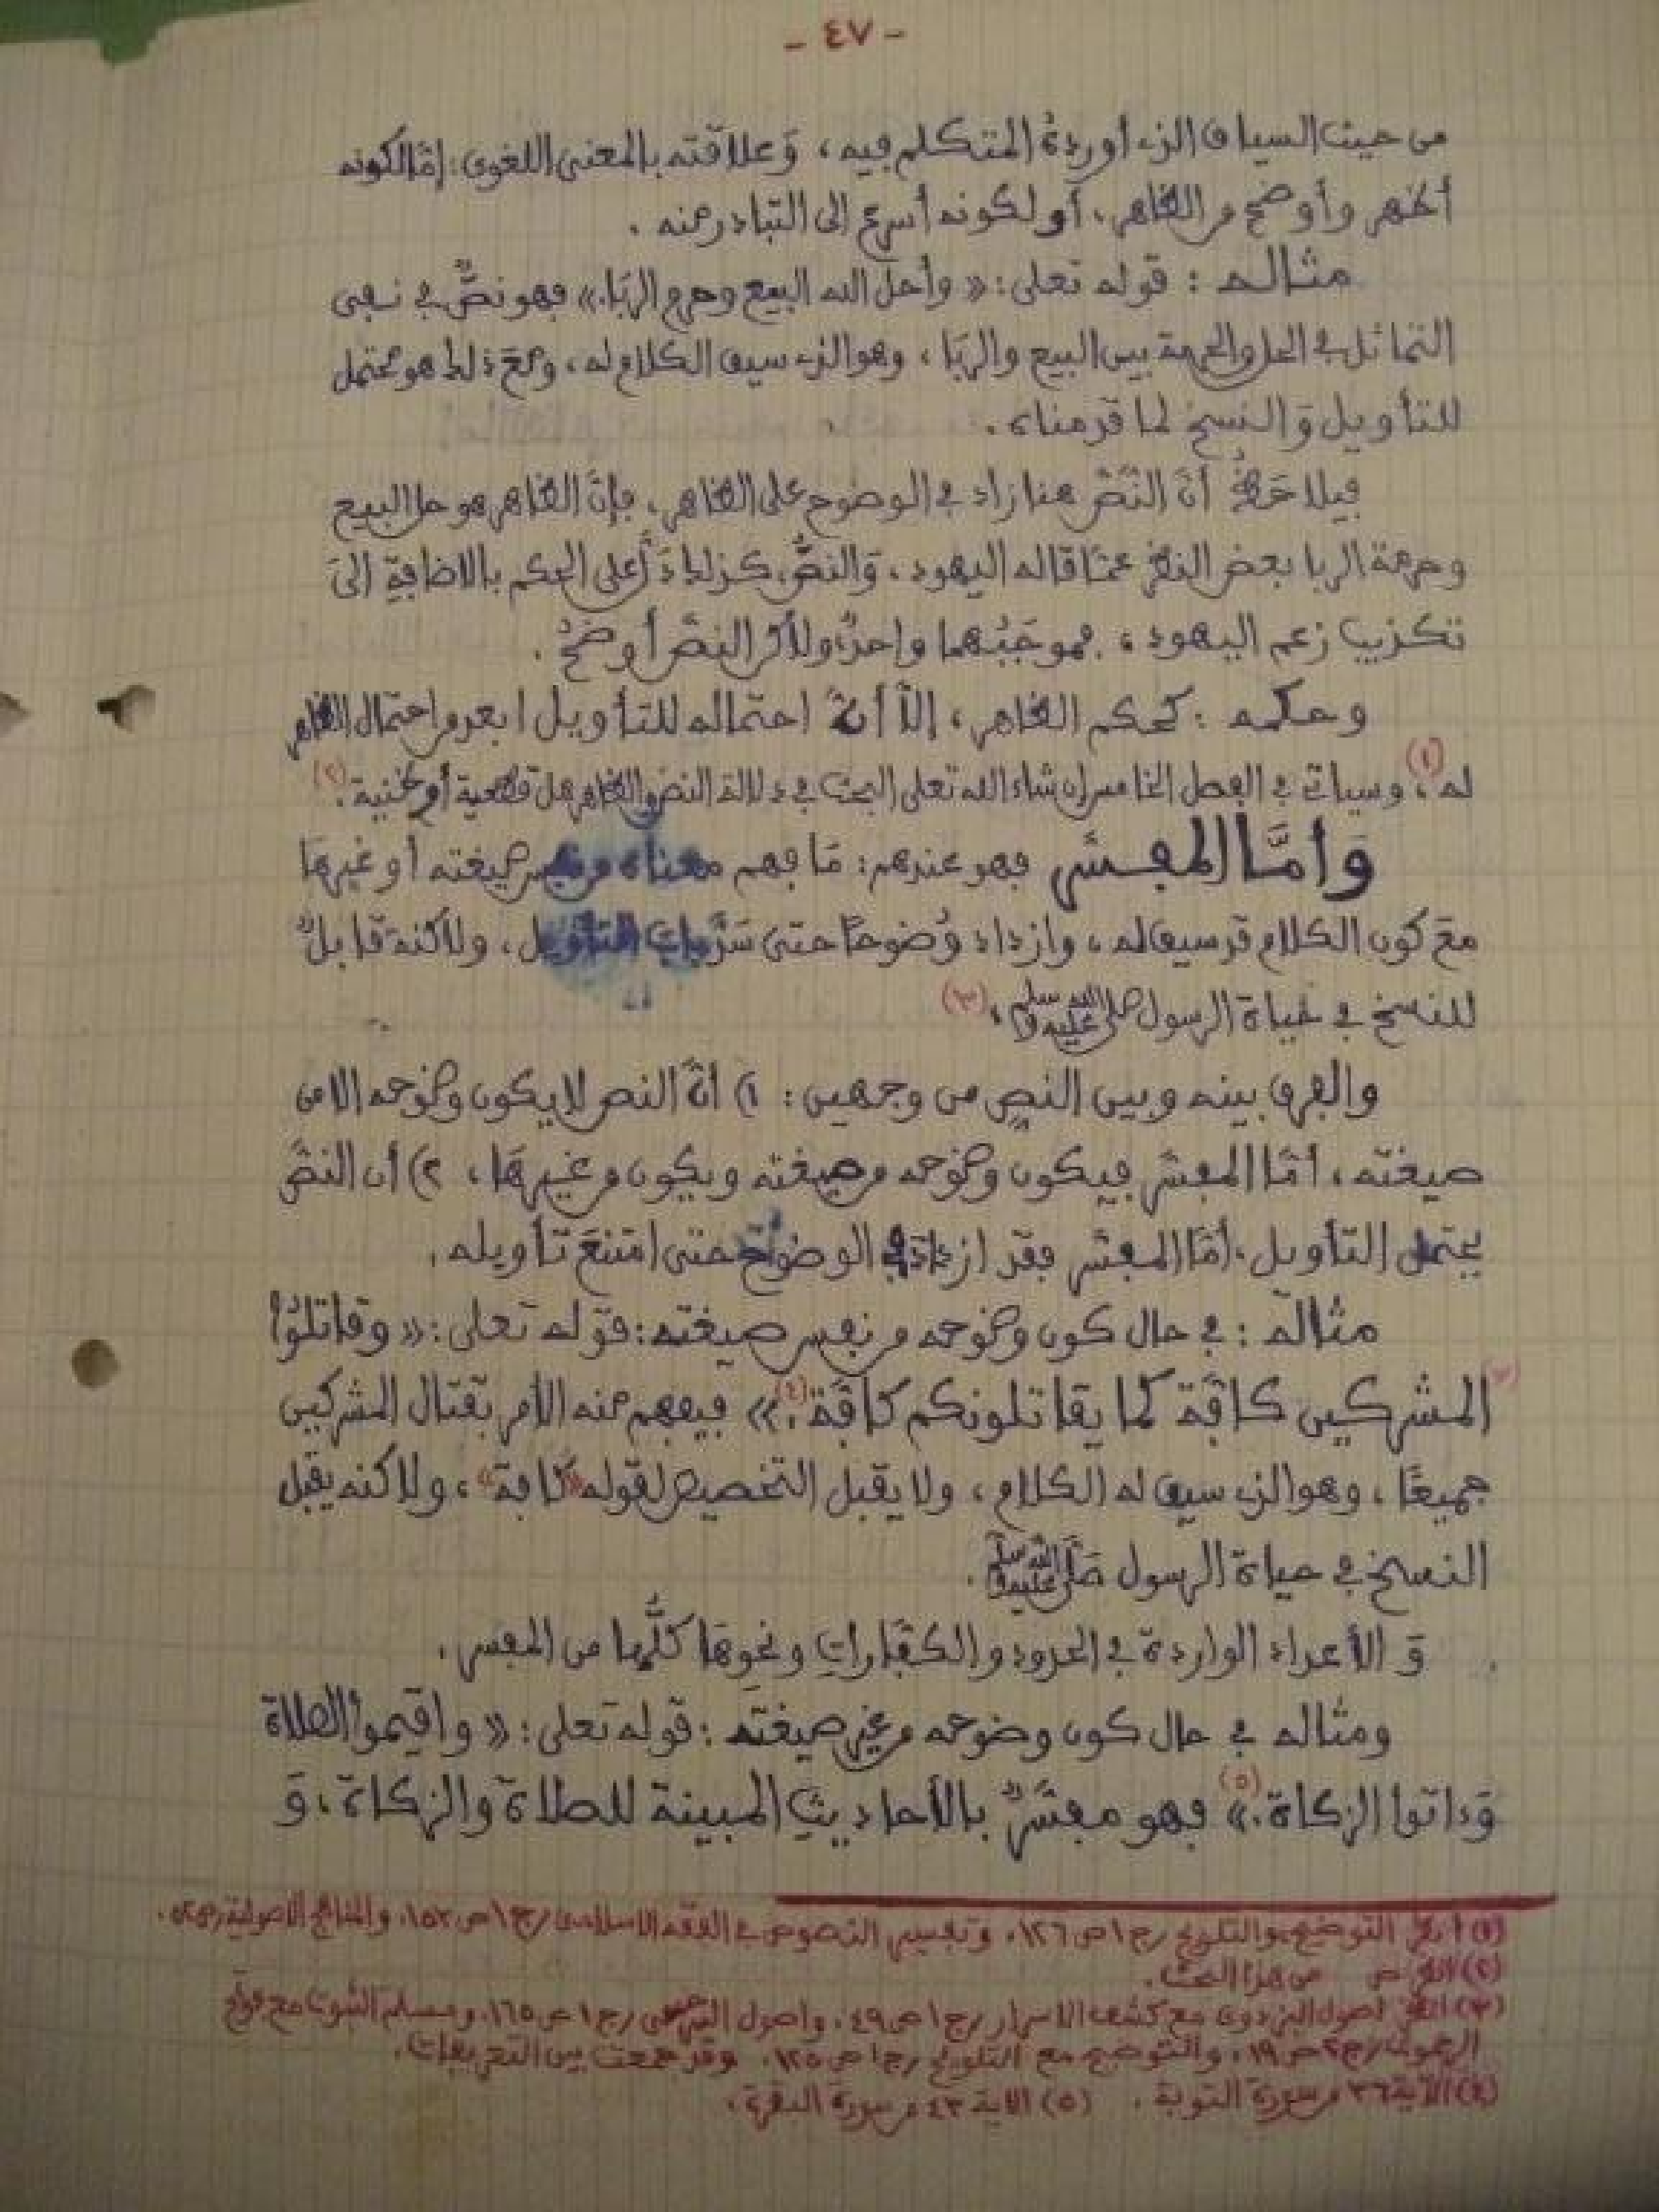 - ٤٧ -
من حيث السياق الذي أورده المتكلم فيه، وَعلاقته بالمعنى اللغوي: إمَّا لكونه
أظهر وأوضح من الظاهر، أو لكونه أسرع إلى التبادر منه .
مثاله : قوله تعلى: « وأحل الله البيع وحرم الربَا.» فهو نصٌّ في نفي
التماثل في الحل والحرمة بين البيع والربَا، وهو الذي سيق الكلام له، ومعَ ذلك هو محتمل
للتأويل وَالنسخ لما قدمناه .
فيلاحَظُ أنَّ النَّصَّ هنا زاد في الوضوح على الظاهر، فإنَّ الظاهر هو حل البيع
وحرمة الربا بغض النظر عمَّا قاله اليهود، وَالنصُّ كذلك دَلَّ على الحكم بالاضافةِ إلىَ
تكذيب زعم اليهود، فموجَبُهما واحدٌ ولاكن النصَّ أوضحُ .
وحكمه : كحكم الظاهر، إلَّا أنَّ احتماله للتأويل ابعد من احتمال الظاهر
له (١)، وسيأتي في الفصل الخامس إن شاء الله تعلى البحث في دلالة النص والظاهر هل قطعية أو ظنية. (٢)
وَأمَّا المفسَّر فهو عندهم: مَا فهم معناه من نفس صيغته أو غيرهَا
معَ كون الكلام قد سيق له، وازداد وُضوحًا حتى سَدَّ باب التأويل، ولاكنه قابلٌ
للنسخ في حياة الرسول صلى الله عليه وسلم. (٣)
والفرق بينه وبين النص من وجهين: ١) أنَّ النص لا يكون وضوحه الا من
صيغته، أمَّا المفسَّر فيكون وضوحه من صيغته ويكون من غيرهَا، ٢) أن النصَّ
يحتمل التأويل، أمَّا المفسَّر فقد ازداد في الوضوح حتى امتنعَ تأويله .
مثاله : في حال كون وضوحه من نفس صيغته: قوله تعلى: « وقاتلوُا
المشركين كافَّة كما يقاتلونكم كافَّة. (٤)» فيفهم منه الأمر بقتال المشركين
جميعًا، وهو الذي سيق له الكلام، ولا يقبل التخصيص لقوله «كافة»، ولاكنه يقبل
النسخ في حياة الرسول صَلَّى الله عليه وسلم .
وَ الأعداد الواردة في الحدود والكفَّاراتِ ونحوِهَا كلُّها من المفسر .
ومثاله في حال كون وضوحه من غير صيغته : قوله تعلى: « واقيموا الصلاة
وَءاتوا الزكاة. (٥)» فهو مفسَّرٌ بالأحاديثِ المبينة للصلاة والزكاة، وَ
(١) انظر التوضيح والتلويح ج ١ ص ١٢٦، وتفسير النصوص في الفقه الاسلامي ج ١ ص ١٥٢، والمناهج الأصولية
(٢) انظر ص من هذا البحث .
(٣) انظر اصول البزدوي مع كشف الاسرار ج ١ ص ٤٩، واصول السرخسي ج ١ ص ١٦٥، ومسلم الثبوت مع فواتح
الرحموت ج ٢ ص ١٩، والتوضيح مع التلويح ج ١ ص ١٢٥، وقد جمعت بين التعريفات .
(٤) الآية ٣٦ من سورة التوبة . (٥) الاية ٤٣ من سورة البقرة .